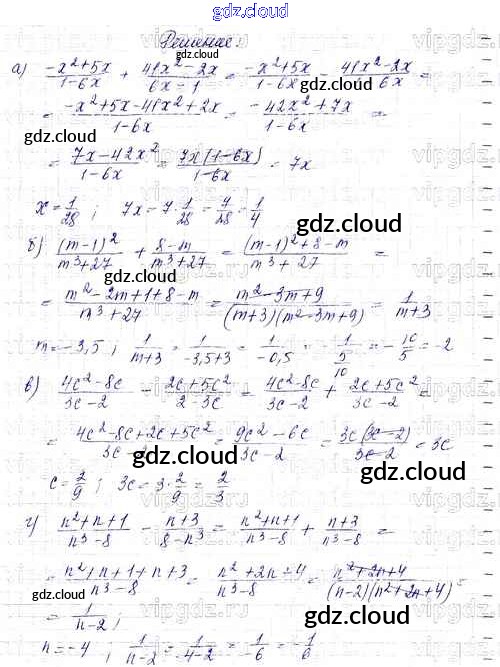 gdz.cloud
Решение:
а) (-x²+5x)/(1-6x) + (41x²-2x)/(6x-1) = (-x²+5x)/(1-6x) - (41x²-2x)/(1-6x) =
= (-x²+5x-41x²+2x)/(1-6x) = (-42x²+7x)/(1-6x) =
= (7x-42x²)/(1-6x) = 7x(1-6x)/(1-6x) = 7x
x = 1/28 ; 7x = 7·1/28 = 7/28 = 1/4
б) (m-1)²/(m³+27) + (8-m)/(m³+27) = ((m-1)²+8-m)/(m³+27) =
= (m²-2m+1+8-m)/(m³+27) = (m²-3m+9)/((m+3)(m²-3m+9)) = 1/(m+3)
m = -3,5 ; 1/(m+3) = 1/(-3,5+3) = 1/(-0,5) = -1/(5/10) = -10/5 = -2
в) (4c²-8c)/(3c-2) - (2c+5c²)/(2-3c) = (4c²-8c)/(3c-2) + (2c+5c²)/(3c-2) =
= (4c²-8c+2c+5c²)/(3c-2) = (9c²-6c)/(3c-2) = 3c(3c-2)/(3c-2) = 3c
c = 2/9 ; 3c = 3·2/9 = 2/3
г) (n²+n+1)/(n³-8) - (n+3)/(8-n³) = (n²+n+1)/(n³-8) + (n+3)/(n³-8) =
= (n²+n+1+n+3)/(n³-8) = (n²+2n+4)/(n³-8) = (n²+2n+4)/((n-2)(n²+2n+4)) =
= 1/(n-2) ;
n = -4 ; 1/(n-2) = 1/(-4-2) = 1/-6 = -1/6